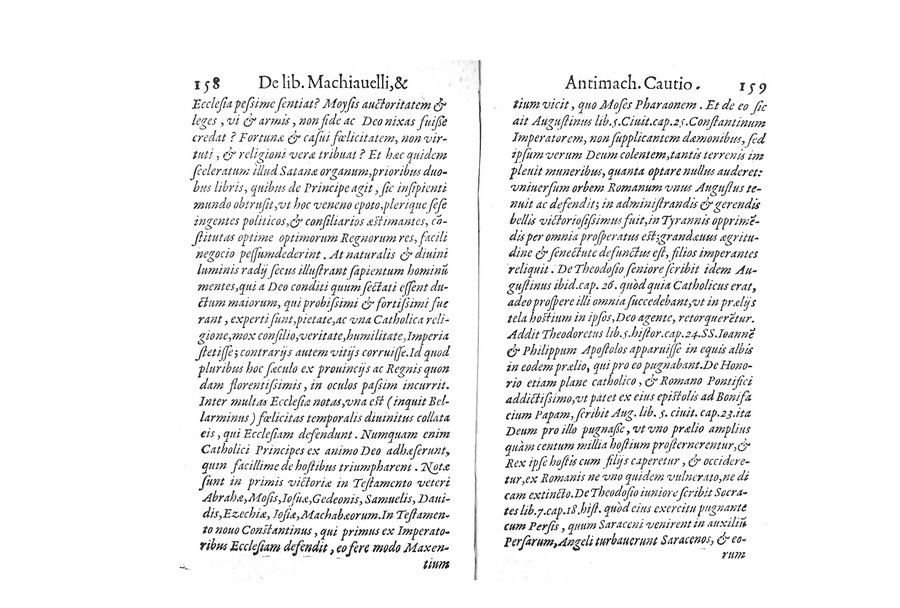 158 De lib. Machiauelli, &
Ecclesia pessime sentiat? Moysis auctoritatem &
leges, vi & armis, non fide ac Deo nixas fuisse
credat? Fortunæ & casui fœlicitatem, non vir-
tuti, & religioni veræ tribuat? Et hæc quidem
sceleratum illud Satanæ organum, prioribus duo-
bus libris, quibus de Principe agit, sic insipienti
mundo obtrusit, vt hoc veneno epoto, plerique sese
ingentes politicos, & consiliarios æstimantes, cō-
stitutas optime optimorum Regnorum res, facili
negocio pessumdederint. At naturalis & diuini
luminis radij secus illustrant sapientum hominū
mentes, qui a Deo conditi quum sectati essent du-
ctum maiorum, qui probissimi & fortissimi fue
rant, experti sunt, pietate, ac vna Catholica reli-
gione, mox consilio, veritate, humilitate, Imperia
stetisse; contrarijs autem vitijs corruisse. Id quod
pluribus hoc sæculo ex prouincijs ac Regnis quon
dam florentissimis, in oculos passim incurrit.
Inter multas Ecclesiæ notas, vna est (inquit Bel-
larminus) fœlicitas temporalis diuinitus collata
eis, qui Ecclesiam defendunt. Numquam enim
Catholici Principes ex animo Deo adhæserunt,
quin facillime de hostibus triumpharent. Notæ
sunt in primis victoriæ in Testamento veteri
Abrahæ, Mosis, Iosuæ, Gedeonis, Samuelis, Daui-
dis, Ezechiæ, Iosiæ, Machabæorum. In Testamen-
to nouo Constantinus, qui primus ex Imperato-
ribus Ecclesiam defendit, eo fere modo Maxen-
tium
Antimach. Cautio. 159
tium vicit, quo Moses Pharaonem. Et de eo sic
ait Augustinus lib. 5. Ciuit. cap. 25. Constantinum
Imperatorem, non supplicantem dæmonibus, sed
ipsum verum Deum colentem, tantis terrenis im
pleuit muneribus, quanta optare nullus auderet:
vniuersum orbem Romanum vnus Augustus te-
nuit ac defendit; in administrandis & gerendis
bellis victoriosissimus fuit, in Tyrannis opprimē-
dis per omnia prosperatus est; grandæuus ægritu-
dine & senectute defunctus est, filios imperantes
reliquit. De Theodosio seniore scribit idem Au-
gustinus ibid. cap. 26. quòd quia Catholicus erat,
adeo prospere illi omnia succedebant, vt in prælijs
tela hostium in ipsos, Deo agente, retorquerētur.
Addit Theodoretus lib. 5. histor. cap. 24. SS. Ioannē
& Philippum Apostolos apparuisse in equis albis
in eodem prælio, qui pro eo pugnabant. De Hono-
rio etiam plane catholico, & Romano Pontifici
addictissimo, vt patet ex eius epistolis ad Bonifa
cium Papam, scribit Aug. lib. 5. ciuit. cap. 23. ita
Deum pro illo pugnasse, vt vno prælio amplius
quàm centum millia hostium prosternerentur, &
Rex ipse hostis cum filijs caperetur, & occidere-
tur, ex Romanis ne vno quidem vulnerato, ne di
cam extincto. De Theodosio iuniore scribit Socra-
tes lib. 7. cap. 18. hist. quòd eius exercitu pugnante
cum Persis, quum Saraceni venirent in auxiliū
Persarum, Angeli turbauerunt Saracenos, & eo-
rum